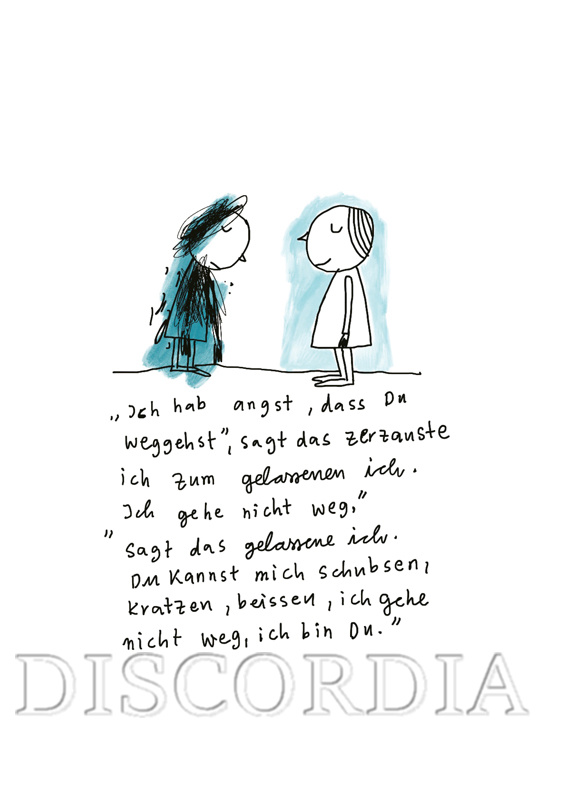 „Ich hab angst, dass Du
weggehst", sagt das zerzauste
ich zum gelassenen ich.
Ich gehe nicht weg,"
"sagt das gelassene ich.
Du kannst mich schubsen,
kratzen, beissen, ich gehe
nicht weg, ich bin Du."
DISCORDIA